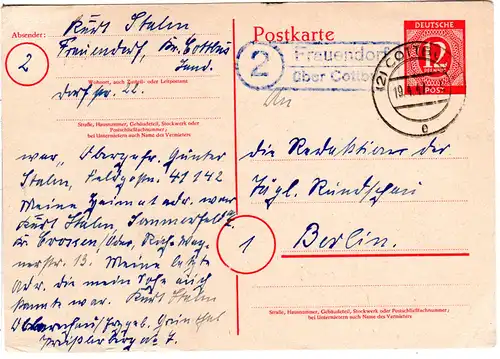 Absender:
Kurt Stalm
Frauendorf, Kr. Cottbus
2
Land.
Wohnort, auch Zustell- oder Leitpostamt
Dorfstr. 22.
Straße, Hausnummer, Gebäudeteil, Stockwerk oder
Postschließfachnummer;
bei Untermietern auch Name des Vermieters
war, Obergefr. Günter
Stalm, Feldpostnr. 41142
Meine Heimatadr. war
Kurt Stalm Sommerfeld
Kr. Crossen/Oder, Rich. Wag-
nerstr. 13. Meine letzte
adr. die mein Sohn auch
kannte war. Kurt Stalm
Grünthal
7.
Postkarte
DEUTSCHE
12
POST
2
Frauendorf
über Cottbus
(2) COTTBUS
e
An
die Redaktion der
Tägl. Rundschau
1
Berlin.
Straße, Hausnummer, Gebäudeteil, Stockwerk oder Postschließfachnummer;
bei Untermietern auch Name des Vermieters